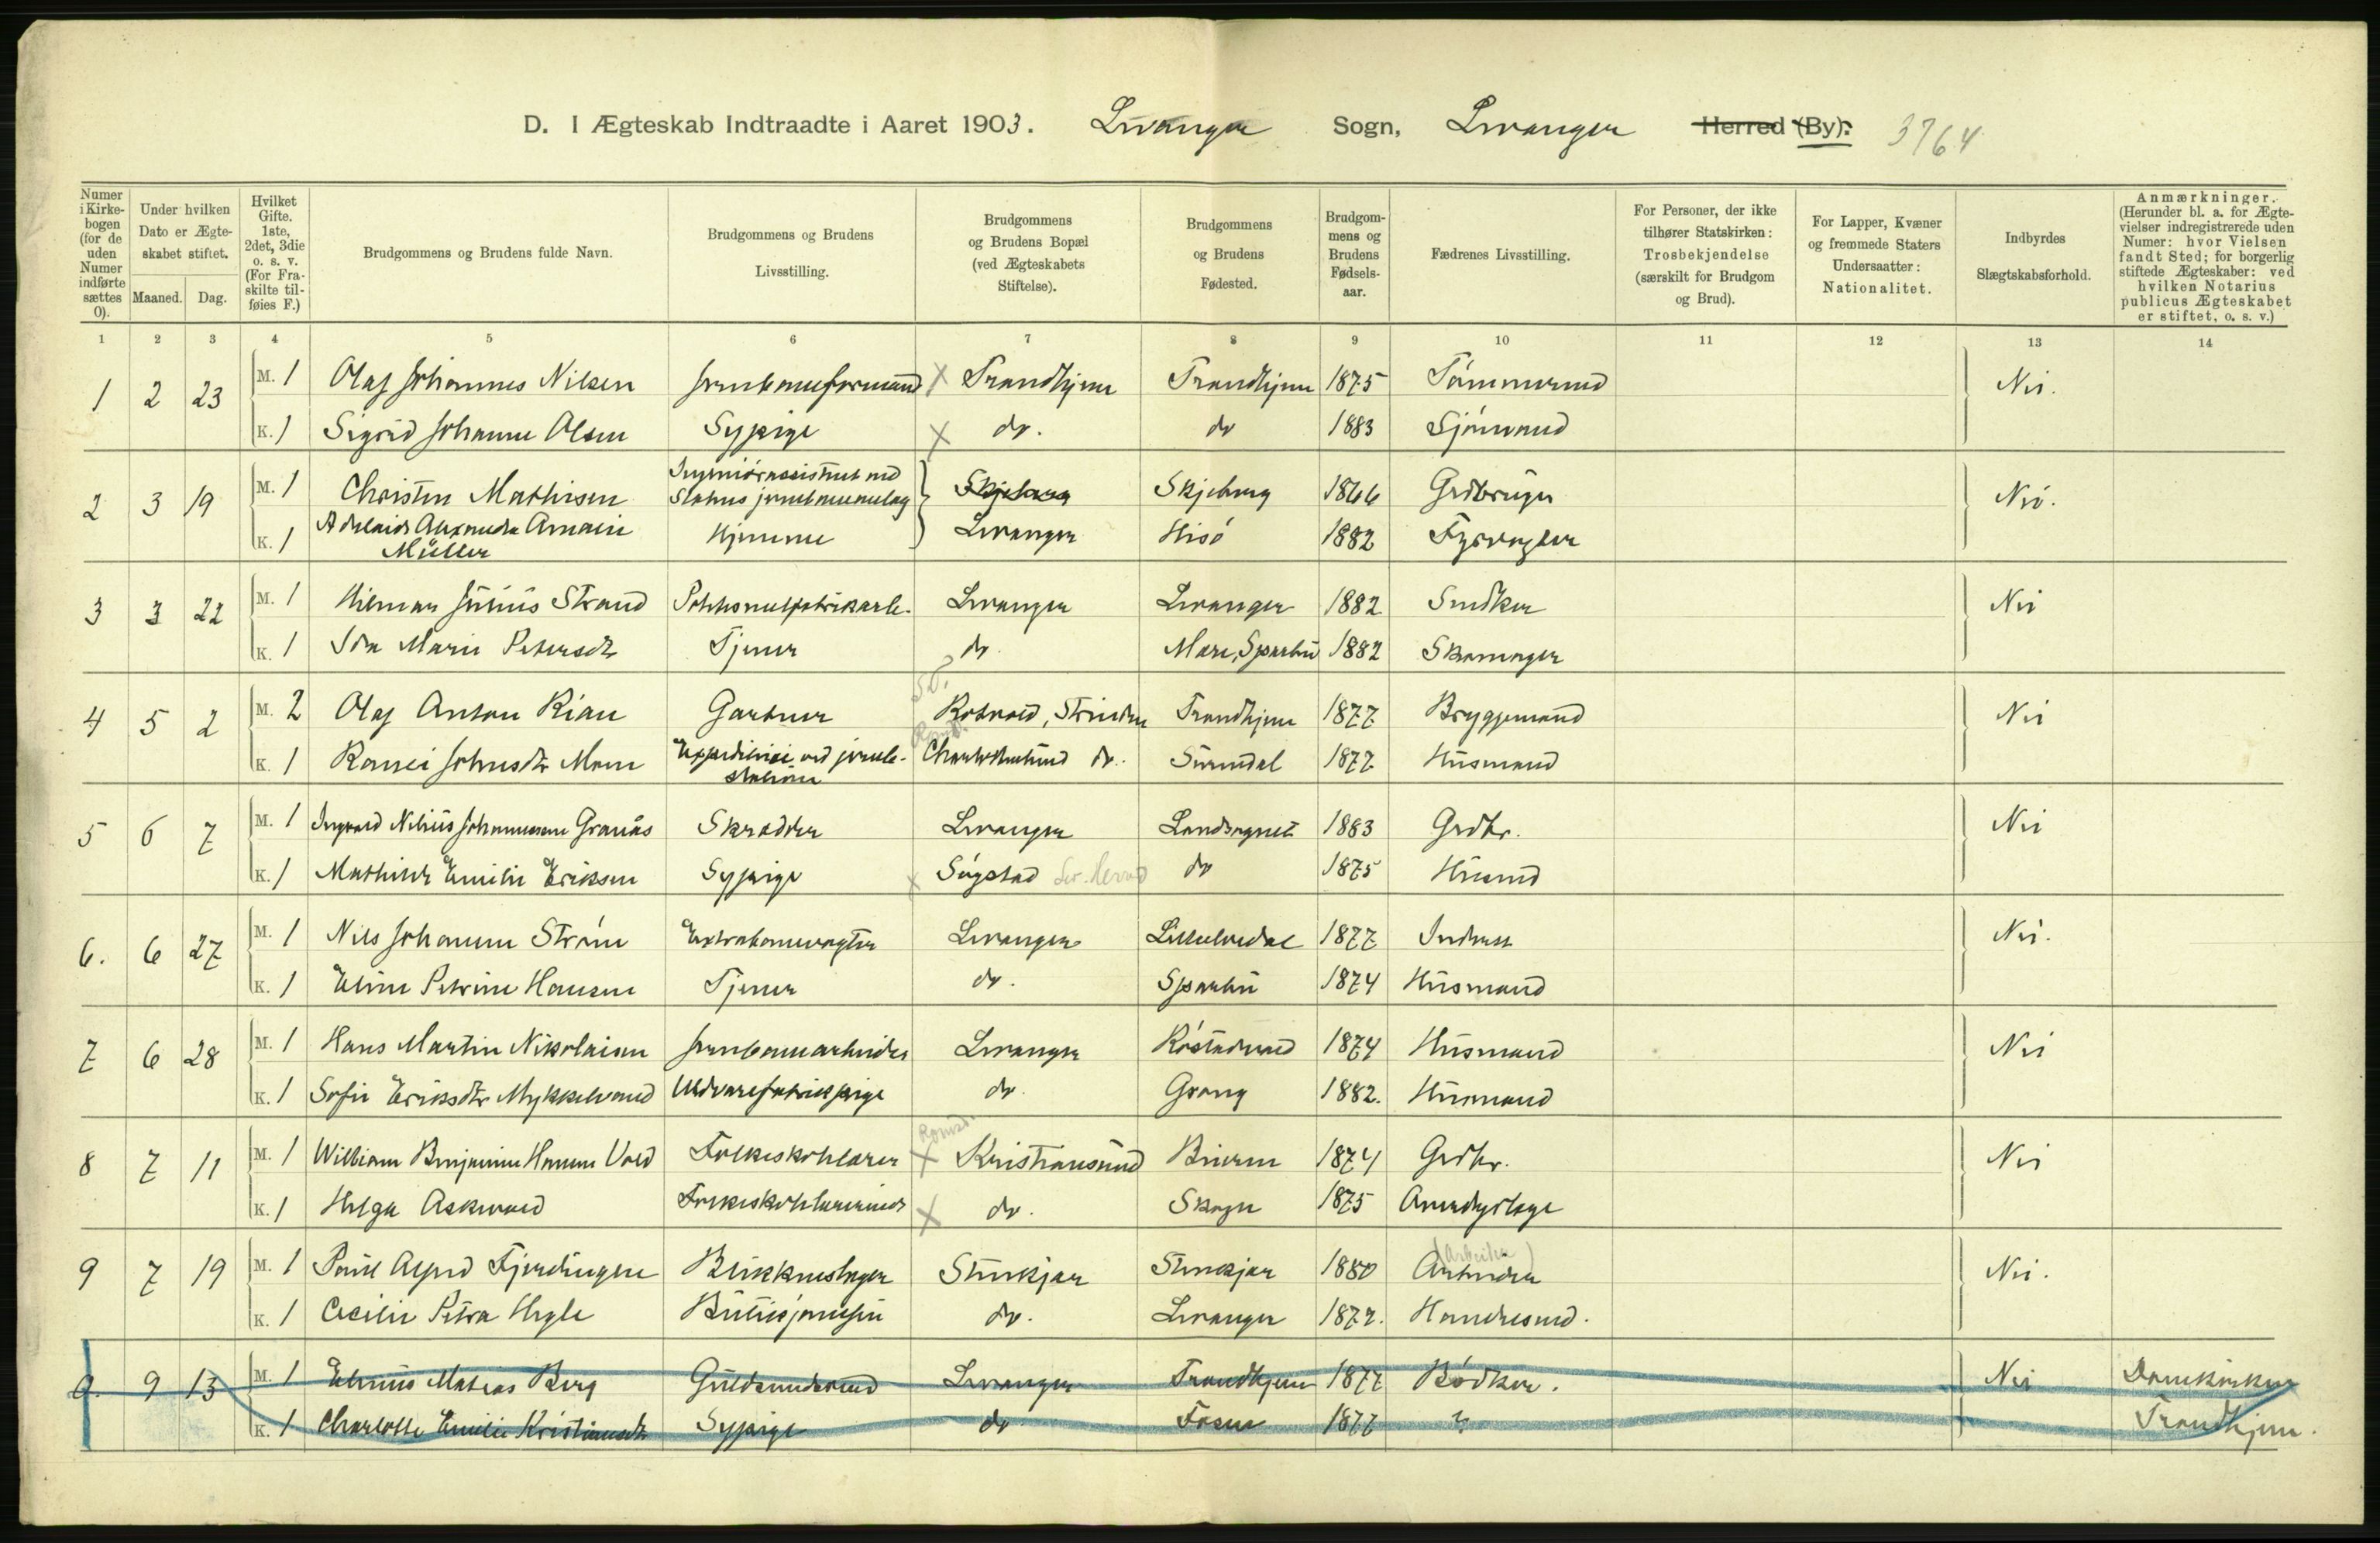 D. I Ægteskab Indtraadte i Aaret 1903. Levanger Sogn, Levanger Herred (By): 3764
Numer i Kirkebogen (for de uden Numer indførte sættes 0).
Under hvilken Dato er Ægteskabet stiftet.
Maaned. Dag.
Hvilket Gifte. 1ste, 2det, 3die o. s. v. (For Fraskilte tilføies F.)
Brudgommens og Brudens fulde Navn.
Brudgommens og Brudens Livsstilling.
Brudgommens og Brudens Bopæl (ved Ægteskabets Stiftelse).
Brudgommens og Brudens Fødested.
Brudgommens og Brudens Fødselsaar.
Fædrenes Livsstilling.
For Personer, der ikke tilhører Statskirken: Trosbekjendelse (særskilt for Brudgom og Brud).
For Lapper, Kvæner og fremmede Staters Undersaatter: Nationalitet.
Indbyrdes Slægtskabsforhold.
Anmærkninger. (Herunder bl. a. for Ægtevielser indregistrerede uden Numer: hvor Vielsen fandt Sted; for borgerlig stiftede Ægteskaber: ved hvilken Notarius publicus Ægteskabet er stiftet, o. s. v.)
1 2 3 4 5 6 7 8 9 10 11 12 13 14
1 2 23 M. 1 Olaf Johannes Nilsen Jernbaneformand X Trondhjem Trondhjem 1875 Tömmermd Nei.
K. 1 Sigrid Johanne Olsen Sypige X do. do 1883 Sjömand
2 3 19 M. 1 Christen Mathisen Ingeniörassistent ved Statens jernbaneanlæg Skjeberg Skjeberg 1866 Grdbruger Nei.
K. 1 Adelaide Alexandra Amalie Müller Hjemme Levanger Hisö 1882 Fyrvogter
3 3 22 M. 1 Hilmar Julius Strand Levanger Levanger 1882 Snedker Nei
K. 1 Ida Marie Petersdtr Tjener do. Mære, Sparbu 1882 Skomager
4 5 2 M. 2 Olaf Anton Rian Gartner Rotvold, Strinden Trondhjem 1877 Bryggemand Nei
K. 1 Johnsdtr Moen ved jernb.-station Charlottenlund do. Surendal 1877 Husmand
5 6 7 M. 1 Ingvald Nilius Johannesen Granås Skrædder Levanger Landsognet 1883 Grdbr. Nei
K. 1 Mathilde Emilie Eriksen Sypige X Søgstad Lev. Herred do 1875 Husmd
6. 6 27 M. 1 Nils Johannes Ström Extrabanevogter Levanger Lilleelvedal 1877 Inderst Nei.
K. 1 Eline Petrine Hansen Tjener do. Sparbu 1874 Husmand
7 6 28 M. 1 Hans Martin Nikolaisen Jernbanearbeider Levanger 1874 Husmand Nei
K. 1 Sofie Eriksdtr Mykkelvand Uldvarefabrikpige do. Grong 1882. Husmand
8 7 11 M. 1 William Benjamin Hansen Vold Folkeskolelærer Romsd. X Kristiansund Beieren 1874 Grdbr. Nei
K. 1 Helga Folkeskolelærerinde X do. Skogn 1875
9 7 19 M. 1 Paul Agmd Fjerdingen Blikkenslager Stenkjær Stenkjær 1880 Arbeider (Arbeider) Nei.
K. 1 Cecilie Petra Hegle Butikjomfru do. Levanger 1877. Handlesmd.
0. 9 13 M. 1 Elenius Matias Berg Guldsmedsvend Levanger Trondhjem 1877 Bödker. Nei Domkirken
K. 1 Charlotte Emilie Kristiansdtr Sypige do Fosen 1877 ? Trondhjem.